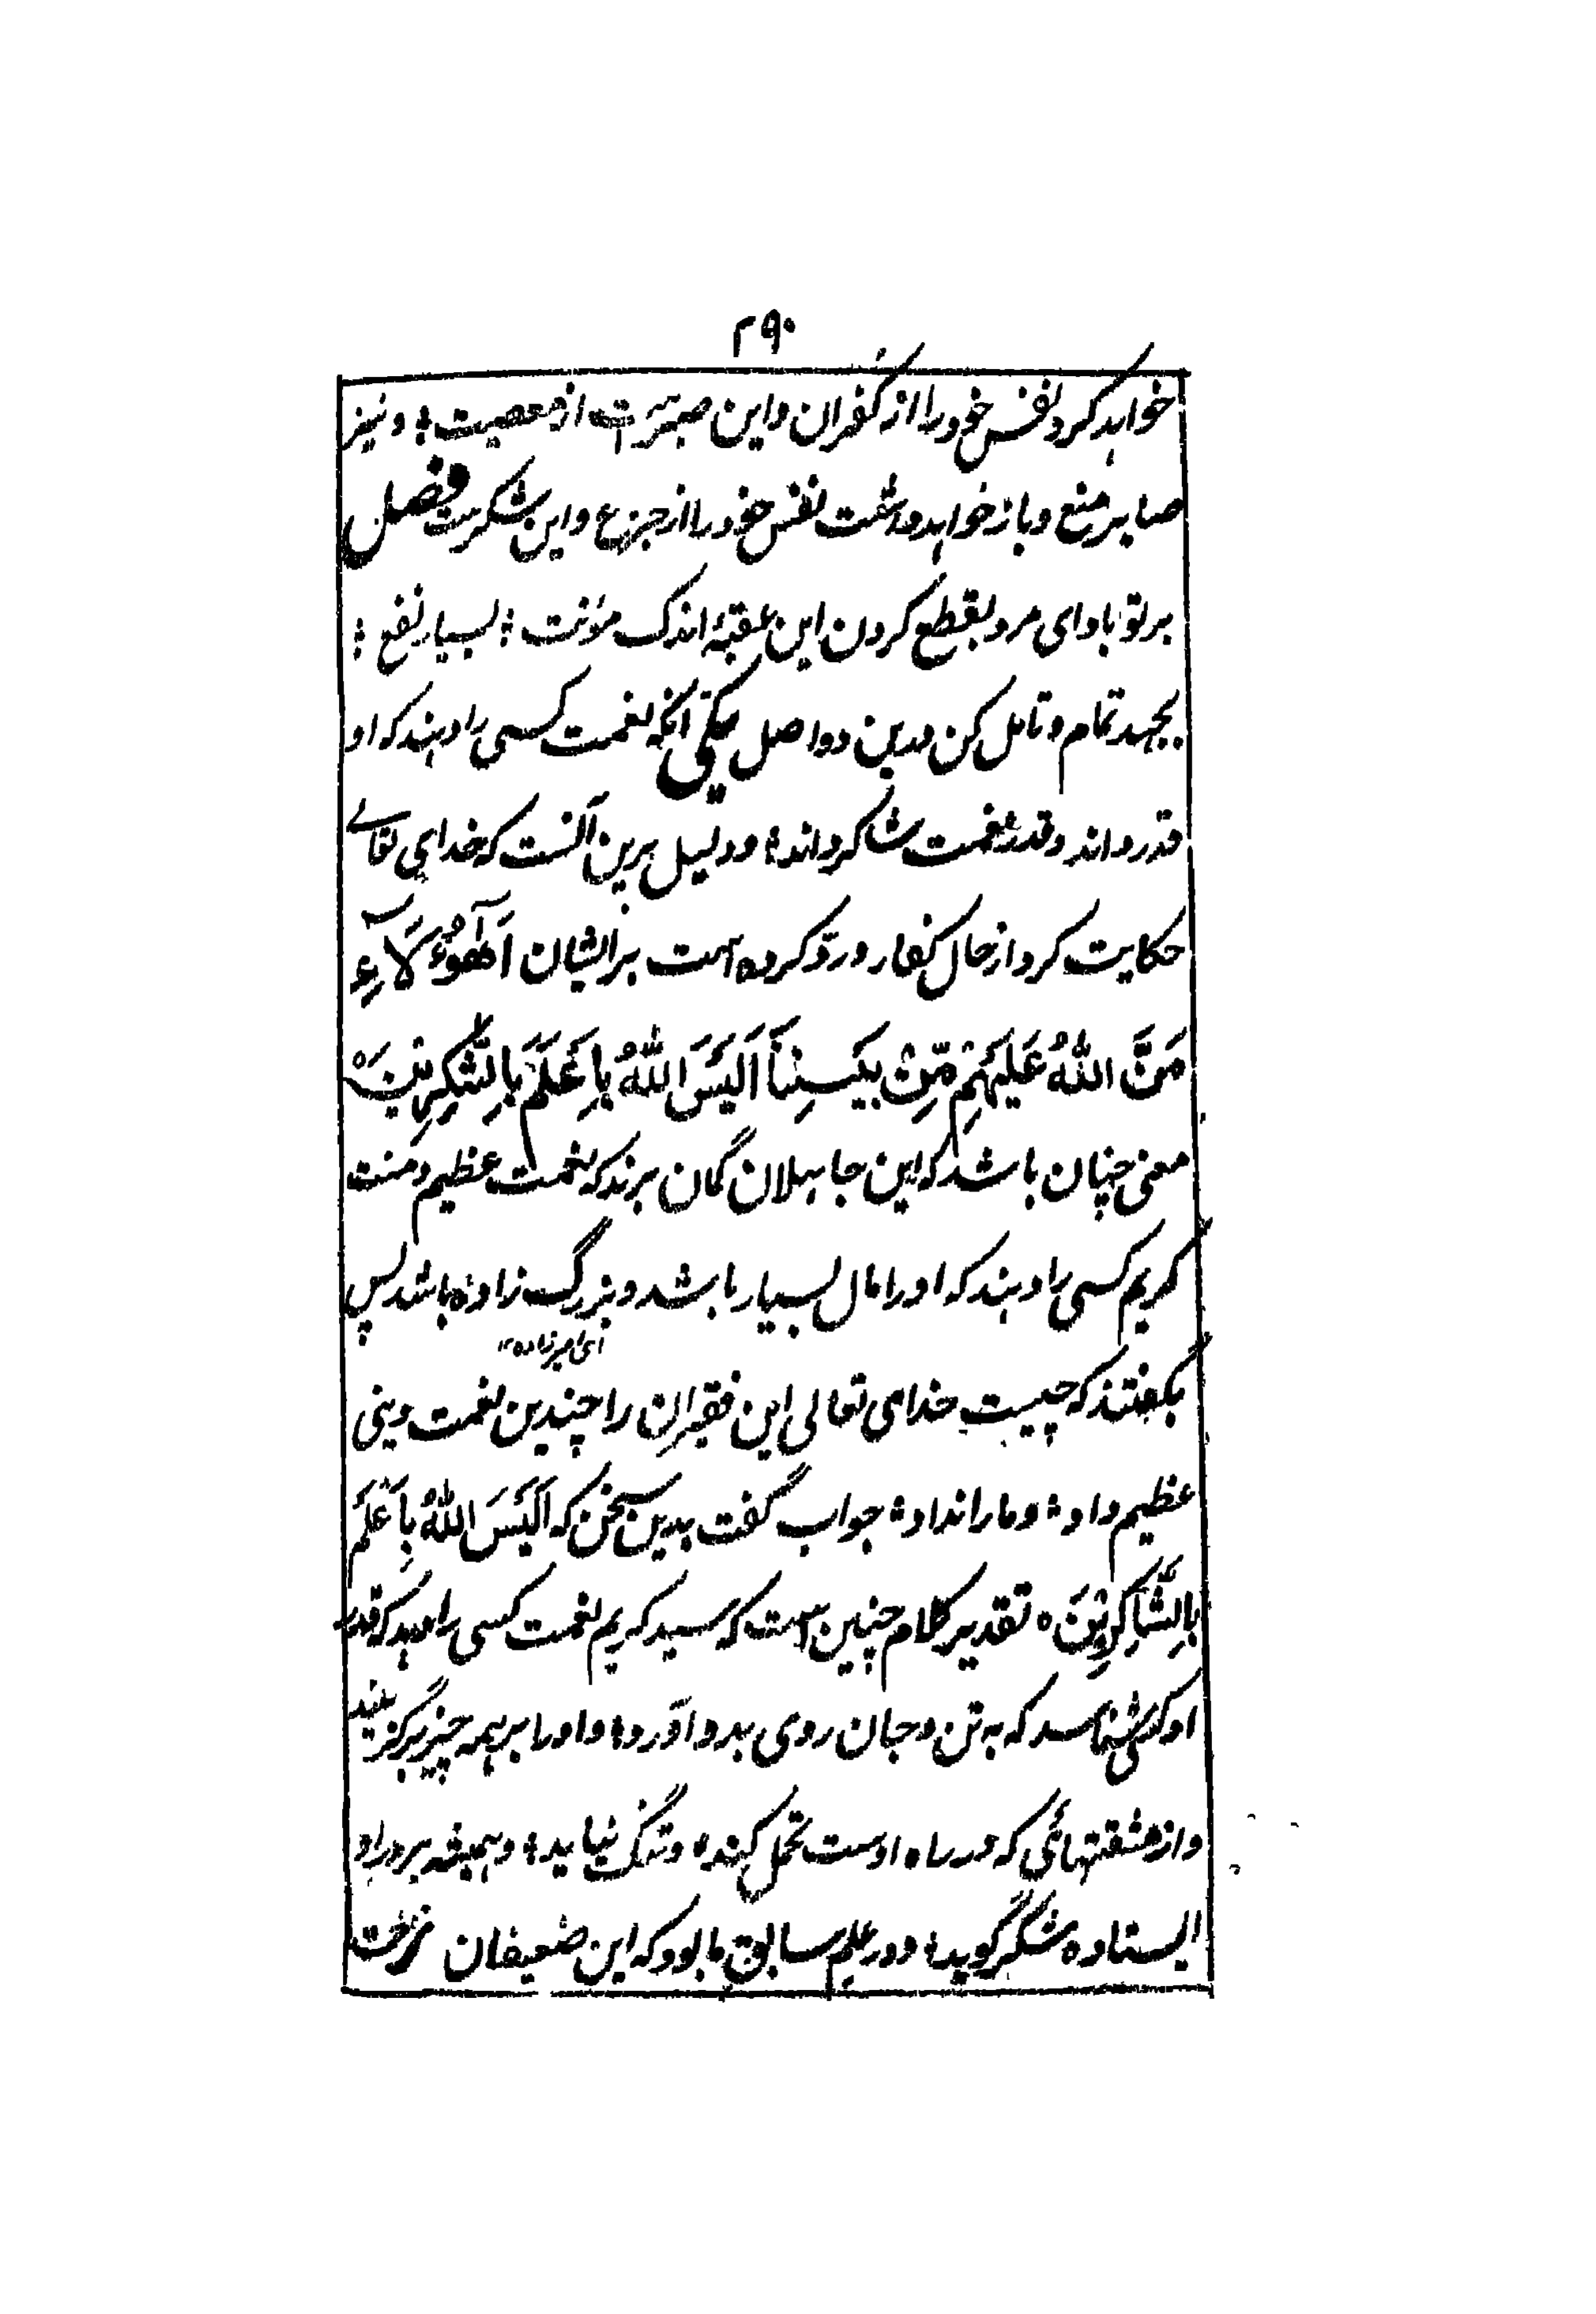 ۲۹۰
خواهد کرد نفس خود را از کفران و این صبرست از معصیت؛ و نیز
صابر منع و باز خواهد داشت نفس خود را از جزع و این شکرست فصل
بر تو باد ای مرد بقطع کردن این عقبهٔ اندک مؤنت؛ بسیار نفع؛
بجهد تمام و تامل کن درین دو اصل یکی آنکه نعمت کسی را دهند که او
قدر داند و قدر نعمت شاکر داند؛ و دلیل برین آنست که خدای تعالے
حکایت کرد از حال کفار و ردّ کرده است بر ایشان اَهٰٓؤُلَآءِ
مَنَّ اللّٰهُ عَلَیْهِمْ مِّنْۢ بَیْنِنَا اَلَیْسَ اللّٰهُ بِاَعْلَمَ بِالشّٰکِرِیْنَ ۵
معنی چنان باشد که این جاهلان گمان برند که نعمت عظیم و منت
کریم کسی را دهند که او را مال بسیار باشد و بزرگ زاده باشد پس
ای امیرزاده ۱۲
بگفتند که چیست خدای تعالی این فقیران را چندین نعمت دینی
عظیم داد؛ و ما را نداد؛ جواب گفت بدین سخن که اَلَیْسَ اللّٰهُ بِاَعْلَمَ
بِالشَّاکِرِیْنَ ۵ تقدیر کلام چنین است که سید کریم نعمت کسی را دهد که قدر
او کسی شناسد که به تن و جان روی بدو آورد؛ و او را بر همه چیز برگزیند
و از مشقتهائی که در راه اوست تحمل کند؛ و تنگ نیاید؛ و همیشه بر در او
ایستاده شکر گوید؛ و در علم سابق ما بود که این ضعیفان